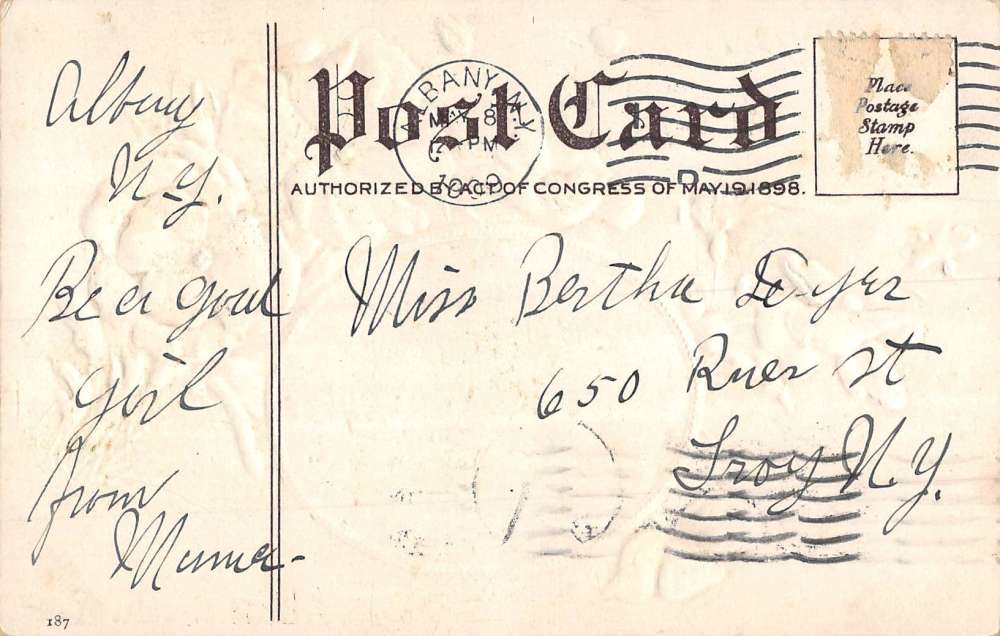 Post Card
AUTHORIZED BY ACT OF CONGRESS OF MAY 19, 1898.
ALBANY, N.Y.
MAY 8
12-PM
1909
D
Place
Postage
Stamp
Here.
Albany
N.Y.
Be a good
girl
from
Mama-
Miss Bertha
650 River St
Troy N.Y.
187